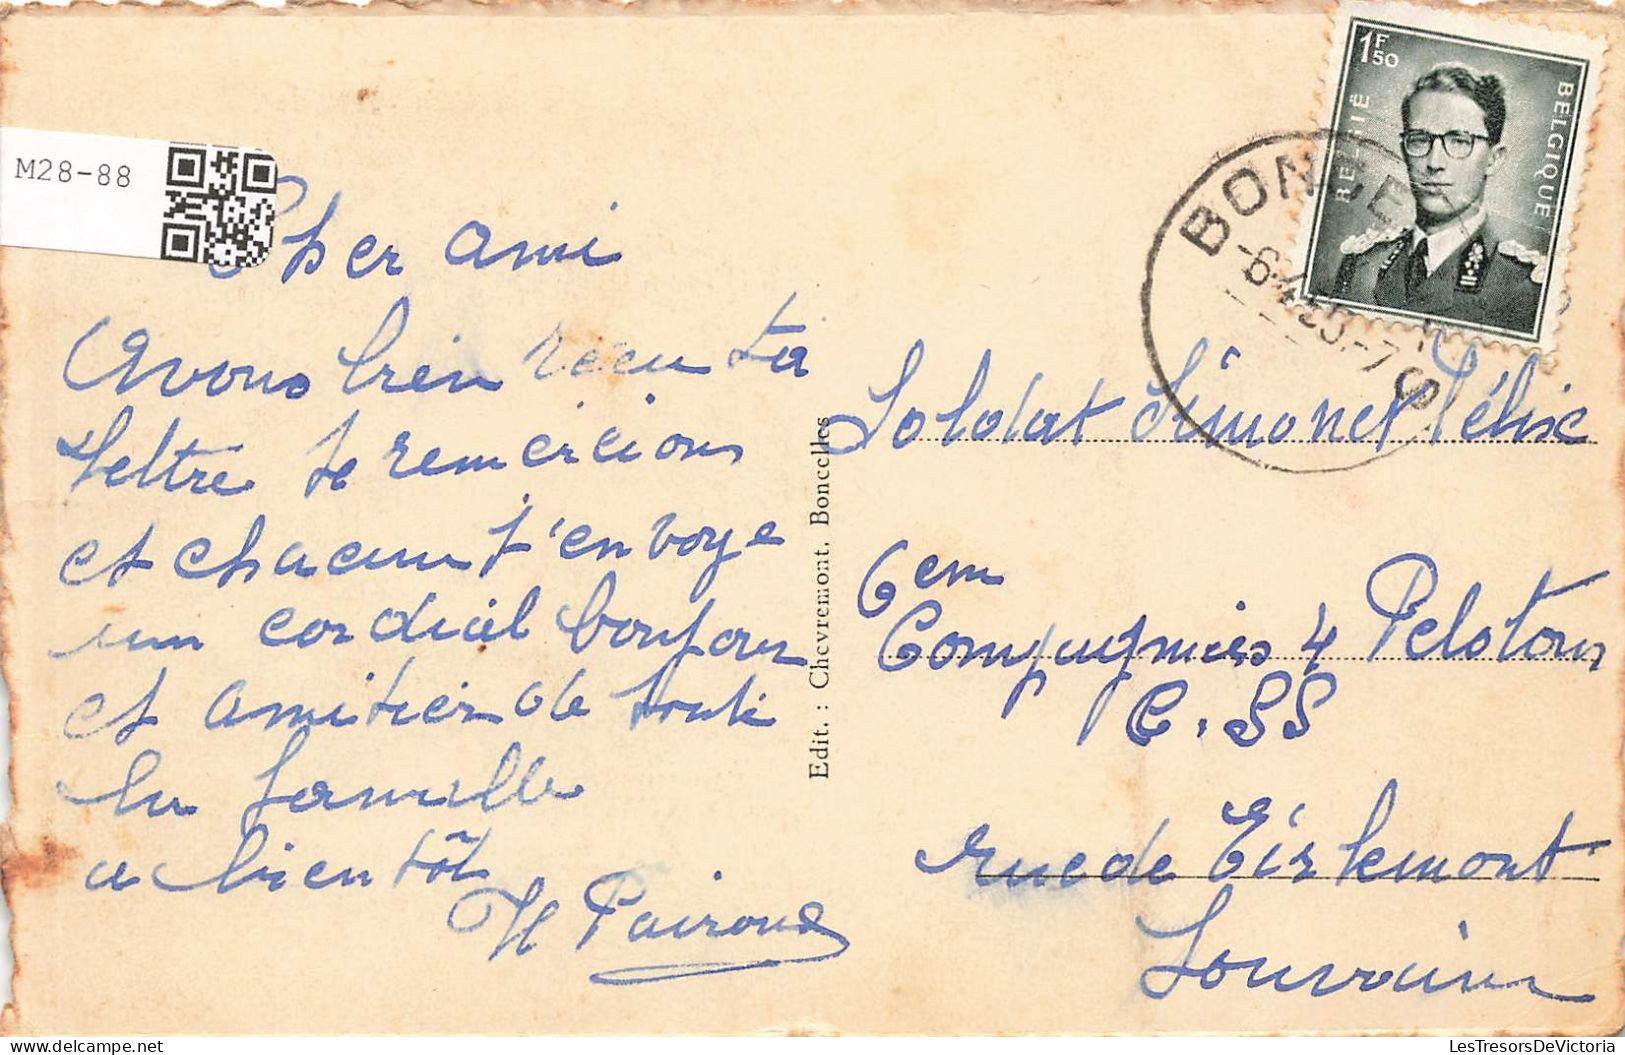 M28-88
Cher ami
Avons bien recu ta
lettre te remercions
et chacun t'envoye
un cordial bonjour
et amitier de toute
la famille
a bientôt
H Pairoux
Edit. : Chevremont, Boncelles
1F50
BELGIË
BELGIQUE
BONCELLES
-6-4
Soldat Simonet Félix
6em
Compagnies 4 Peloton
C. SS
rue de Tirlemont
Louvain
delcampe.net
LesTresorsDeVictoria